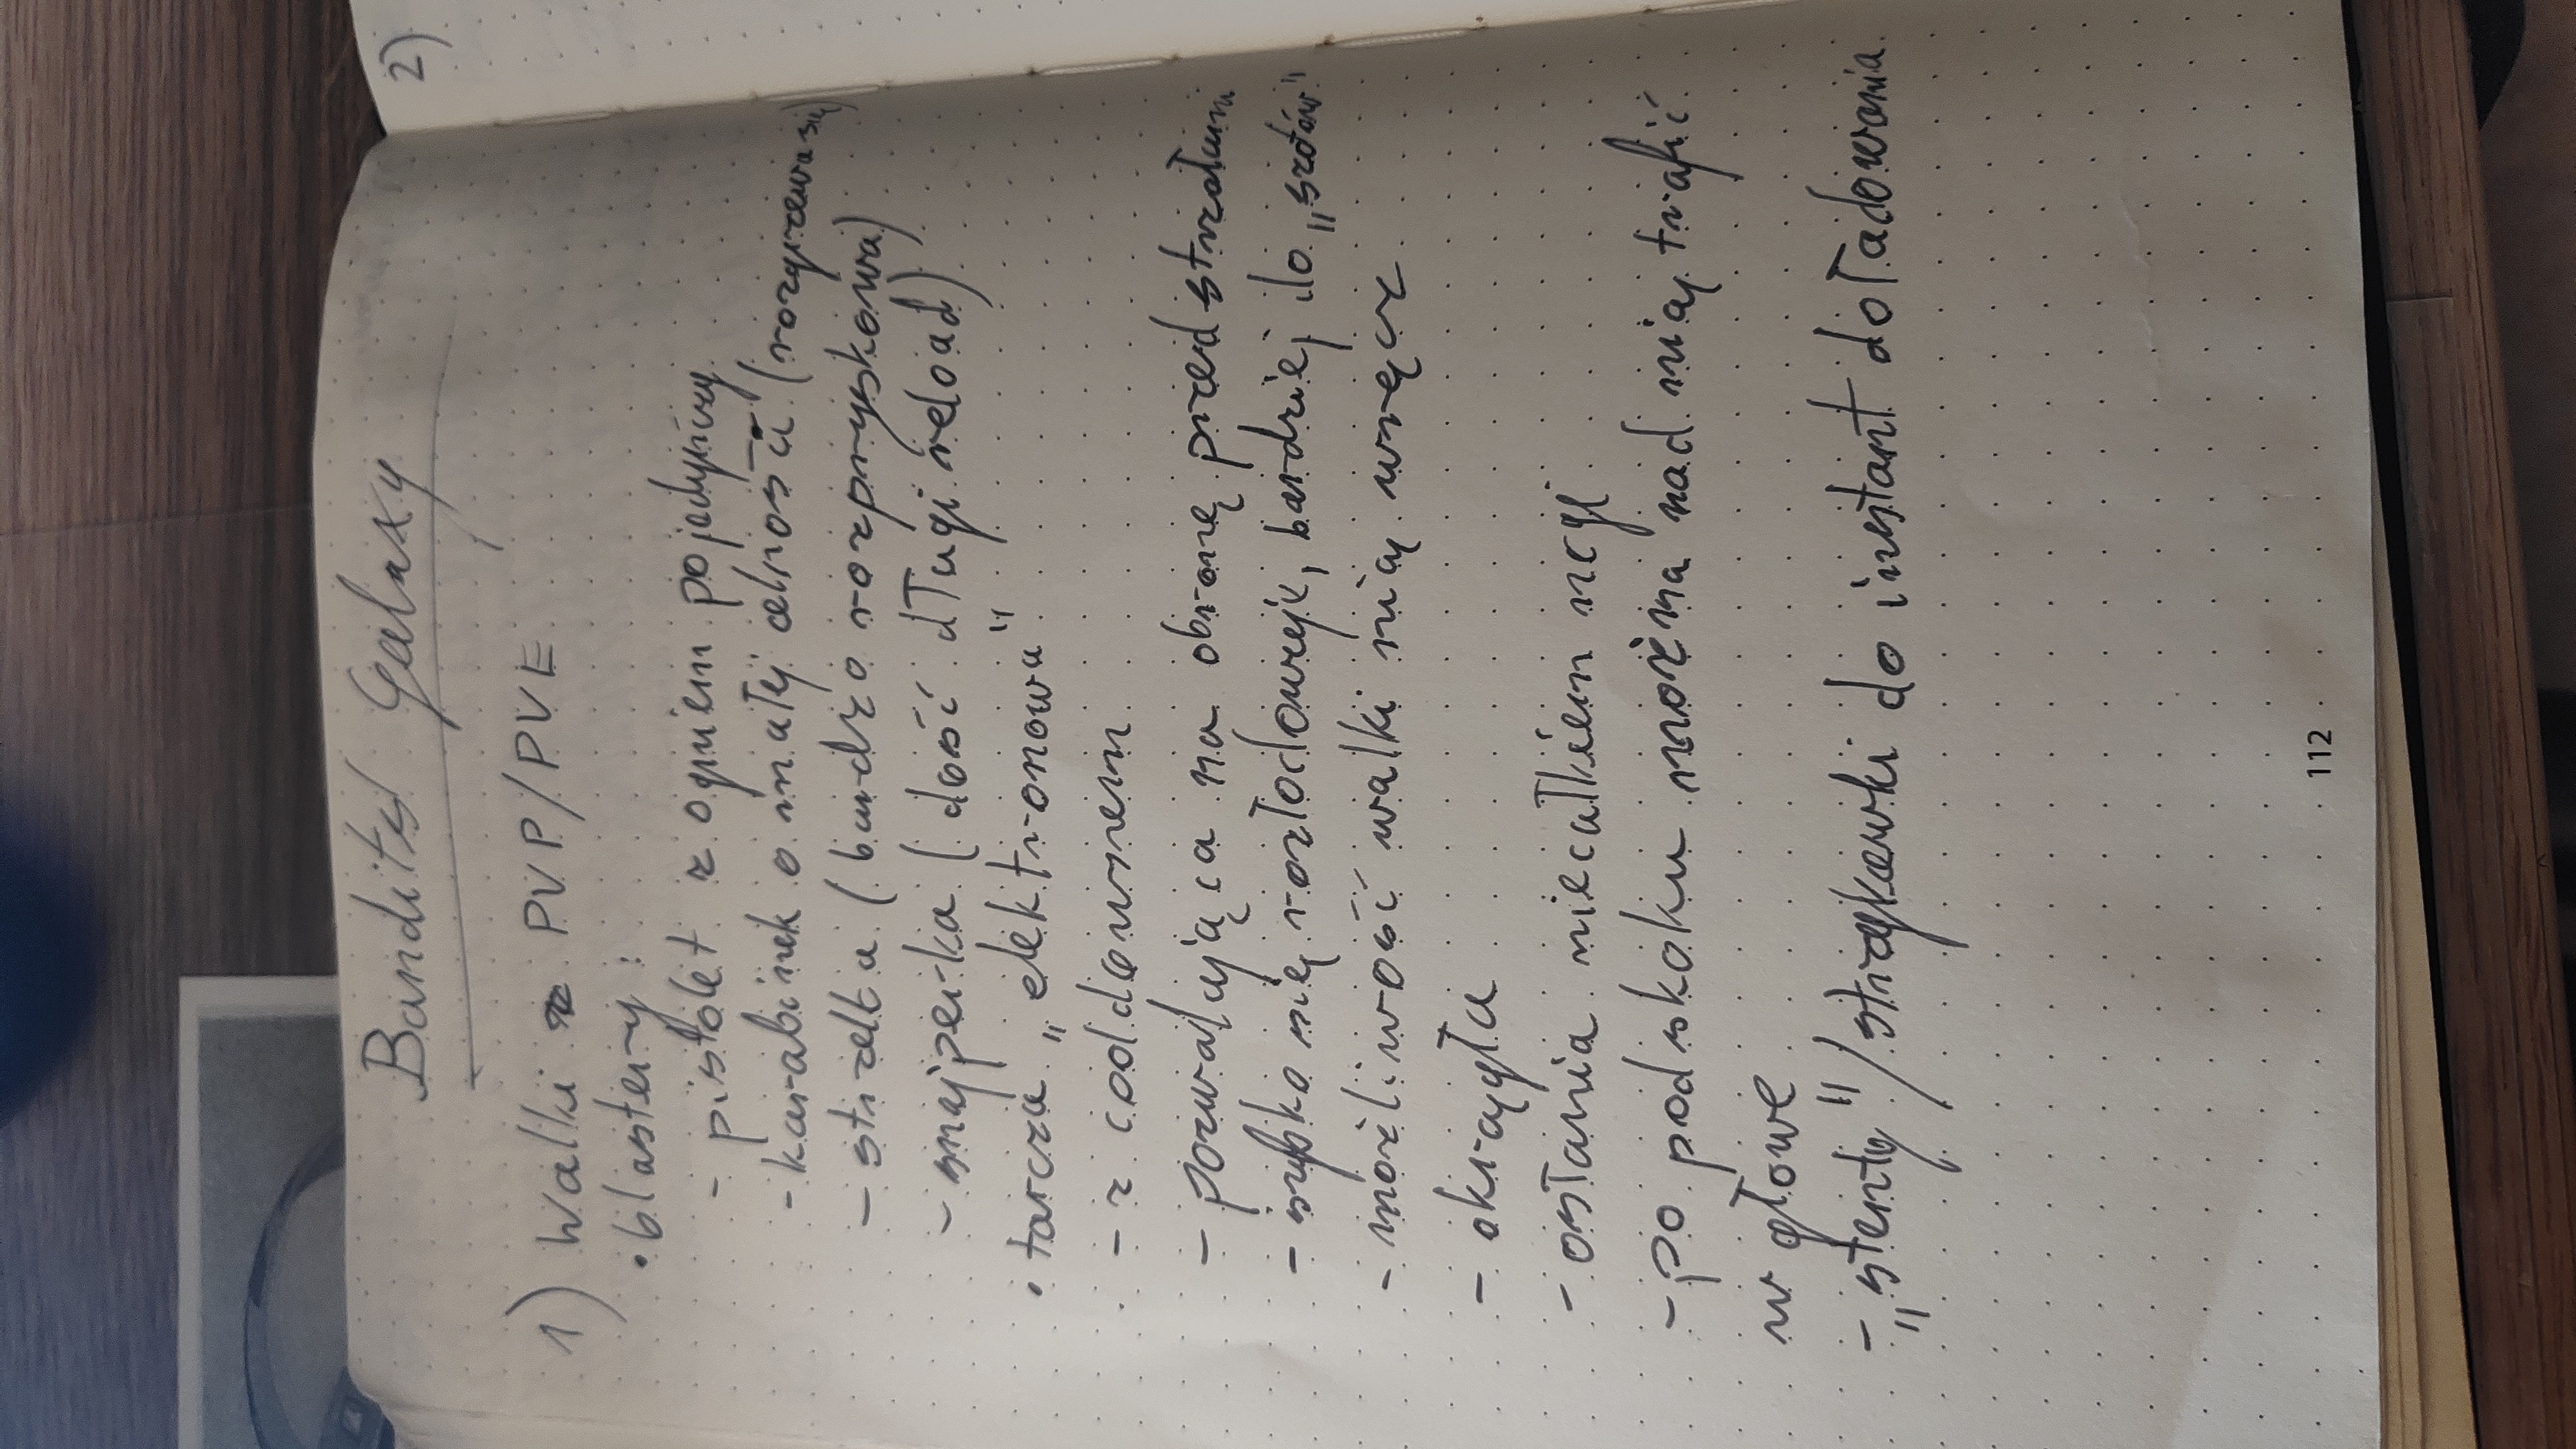 Bandits' Galaxy
2)
1) Walki PVP/PVE
• blastery:
- pistolet z ogniem pojedyńczy
- karabinek o małej celności (rozgrzewa się)
- strzelba (bardzo rozpryskowa)
- snajperka (dość długi reload)
• tarcza „elektronowa"
- z cooldownem
- pozwalająca na obronę przed strzałami
- szybko się rozładowuje, bardziej do
- możliwość walki nią wręcz
- okrągła
- osłania niecałkiem nogi
- po podskoku można nad nią trafić
w głowe
- /strzykawki do instant doładowania
112